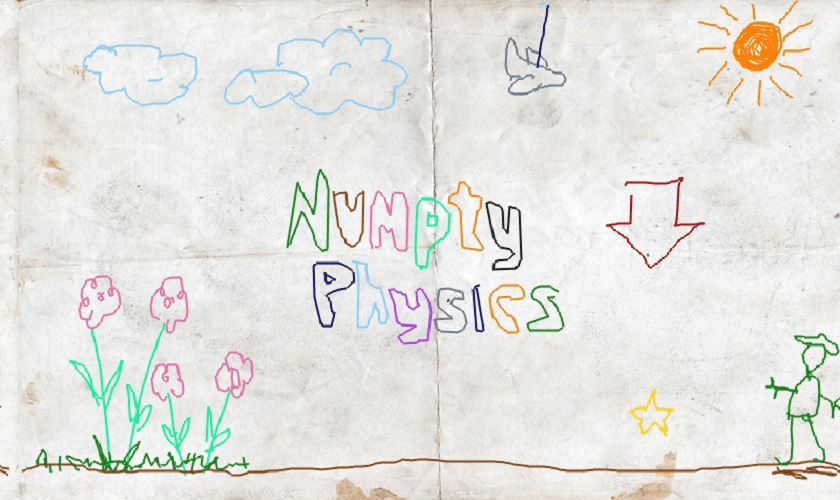 Numpty
Physics